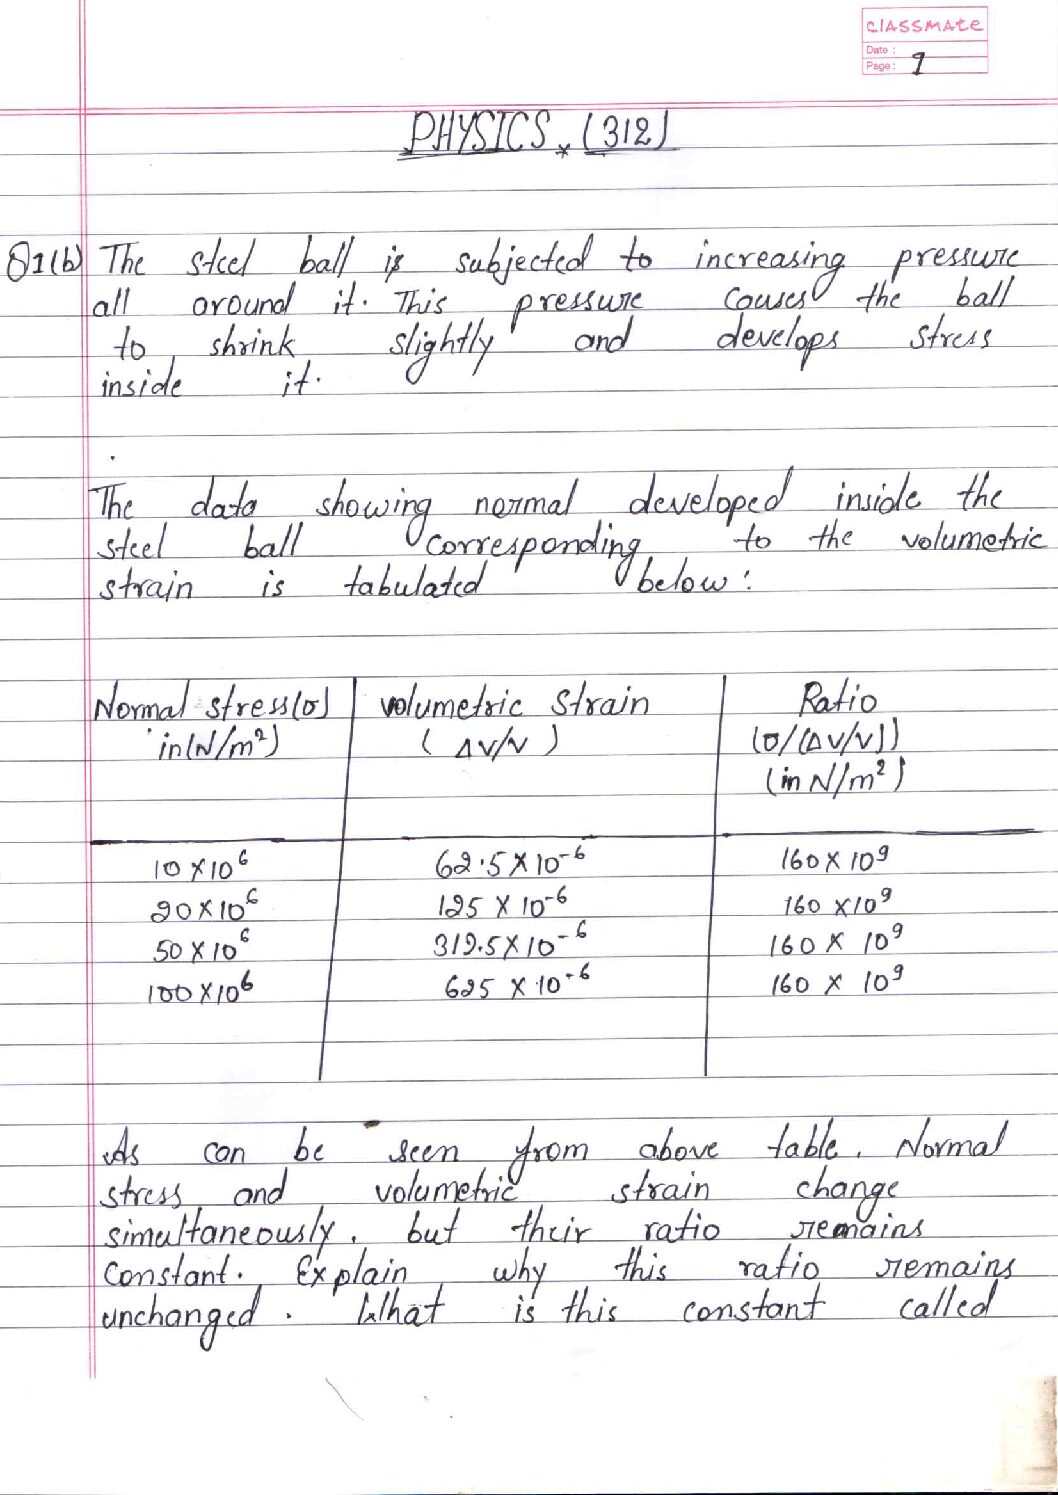 CLASSMATE
Date :
Page : 1
PHYSICS (312)
Q1(b) The steel ball is subjected to increasing pressure
all around it. This pressure causes the ball
to shrink slightly and develops stress
inside it.
The data showing normal developed inside the
steel ball corresponding to the volumetric
strain is tabulated below:
Normal stress(σ) volumetric strain Ratio
in(N/m²) (ΔV/V) (σ/(ΔV/V))
(in N/m²)
10 X 10⁶ 62.5 X 10⁻⁶ 160 X 10⁹
20 X 10⁶ 125 X 10⁻⁶ 160 X 10⁹
50 X 10⁶ 312.5 X 10⁻⁶ 160 X 10⁹
100 X 10⁶ 625 X 10⁻⁶ 160 X 10⁹
As can be seen from above table. Normal
stress and volumetric strain change
simultaneously, but their ratio remains
constant. Explain why this ratio remains
unchanged. What is this constant called